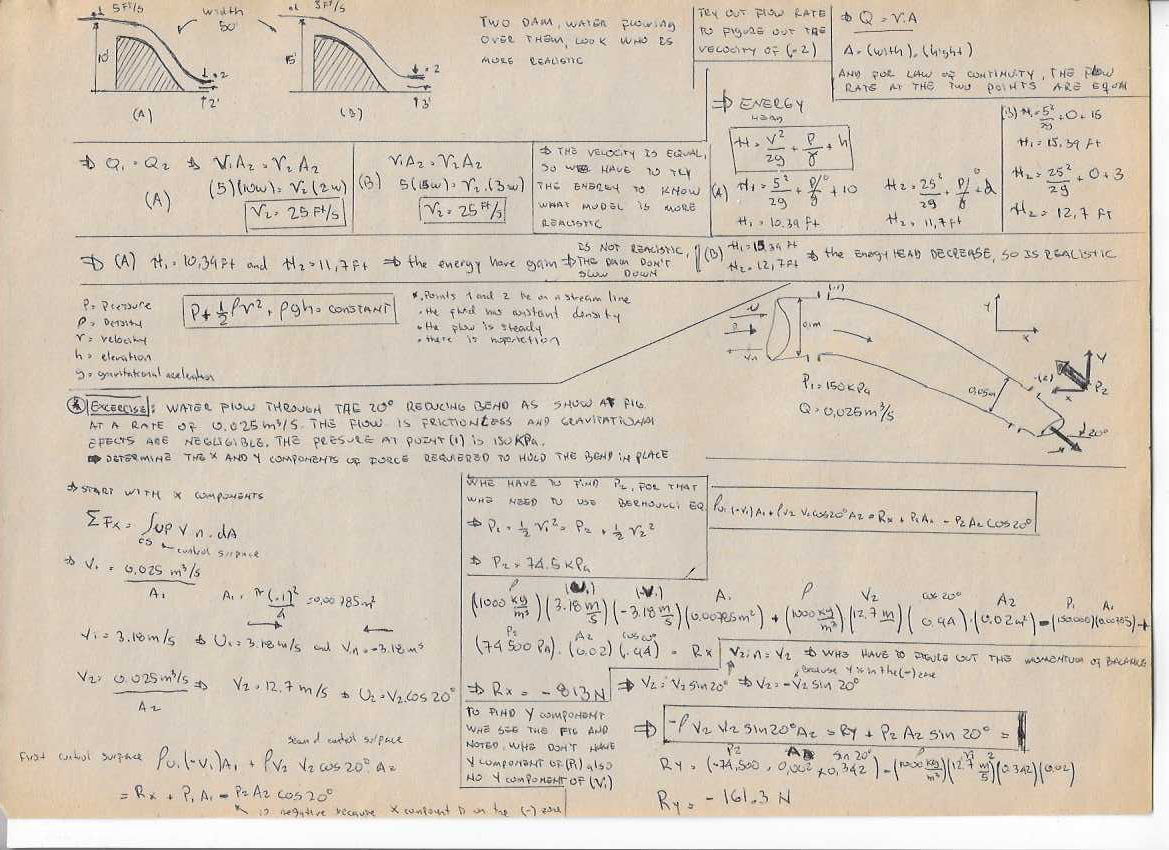 5 Ft/s
width
50'
3 Ft/s
10'
15'
2
2
2'
3'
(A)
(B)
TWO DAM, WATER FLOWING
OVER THEM, LOOK WHO IS
MORE REALISTIC
TRY OUT FLOW RATE
TO FIGURE OUT THE
VELOCITY OF (-2)
⇒ Q = V.A
A = (with).(hight)
AND FOR LAW OF CONTINUITY, THE FLOW
RATE AT THE TWO POINTS ARE EQUAL
⇒ Q1 = Q2 ⇒ V1A2 = V2A2
(A)
(5)(10w) = V2(2w)
V2 = 25 Ft/s
(B)
V1A2 = V2A2
5(15w) = V2.(3w)
V2 = 25 Ft/s
⇒ THE VELOCITY IS EQUAL,
SO WE HAVE TO TRY
THE ENERGY TO KNOW
WHAT MODEL IS MORE
REALISTIC
⇒ ENERGY
HEAD
H = V²/2g + P/γ + h
(A) H1 = 5²/2g + P/γ + 10
H1 = 10.39 Ft
H2 = 25²/2g + P/γ + 2
H2 = 11,7 Ft
(B) H1 = 5²/2g + 0 + 15
H1 = 15,39 Ft
H2 = 25²/2g + 0 + 3
H2 = 12,7 Ft
⇒ (A) H1 = 10,39 Ft and H2 = 11,7 Ft ⇒ the energy have gain ⇒
IS NOT REALISTIC,
THE DAM DON'T
SLOW DOWN
(B) H1 = 15,39 Ft
H2 = 12,7 Ft
⇒ the Energy HEAD DECREASE, SO IS REALISTIC
P = Pressure
ρ = Density
v = velocity
h = elevation
g = gravitational aceleration
P + 1/2 ρv² + ρgh = CONSTANT
*. Points 1 and 2 lie on a stream line
• the fluid has constant density
• the flow is steady
• there is no friction
(1)
0,1m
P1 = 150 KPa
Q = 0,025 m³/s
0,05m
(2)
Y
X
Y
X
P2
20°
EXCERCISE: WATER FLOW THROUGH THE 20° REDUCING BEND AS SHOW AT FIG.
AT A RATE OF 0.025 m³/s. THE FLOW IS FRICTIONLESS AND GRAVITATIONAL
EFFECTS ARE NEGLIGIBLE. THE PRESURE AT POINT (1) IS 150 KPa.
⇒ DETERMINE THE X AND Y COMPONENTS OF FORCE REQUIERED TO HOLD THE BEND IN PLACE
⇒ START WITH X COMPONENTS
ΣFx = ∫ UρV n.dA
cs
control surface
⇒ V1 = 0,025 m³/s / A1
A1 = π(.1)²/4 = 0,00785 m²
V1 = 3.18 m/s ⇒ U1 = 3.18 m/s and Vn = -3.18 m/s
V2 = 0.025 m³/s / A2 ⇒ V2 = 12,7 m/s ⇒ U2 = V2.cos 20°
second control surface
First control surface ρU1(-V1)A1 + ρV2 V2 cos 20° A2
= Rx + P1A1 - P2A2 cos 20°
is negative because x component is on the (-) zone
WHE HAVE TO FIND P2, FOR THAT
WHE NEED TO USE BERNOULLI EQ
⇒ P1 + 1/2 V1² = P2 + 1/2 V2²
⇒ P2 = 74.5 KPa
ρU1(-V1)A1 + ρV2 V2 cos 20° A2 = Rx + P1A1 - P2A2 cos 20°
ρ (V1) (-V1) A1 ρ V2 cos 20° A2 P1 A1
(1000 kg/m³)(3.18 m/s)(-3.18 m/s)(0.00785 m²) + (1000 kg/m³)(12,7 m/s)(0.94).(0.02 m²) = -(150.000)(0.00785) +
P2 A2 cos 20°
(74 500 Pa).(0.02)(.94) = Rx
⇒ Rx = -813 N
V2 in = V2 ⇒ WHE HAVE TO FIGURE OUT THE MOMENTUM OF BALANCE
because Y is in the (-) zone
⇒ V2 = V2 sin 20° ⇒ V2 = -V2 sin 20°
TO FIND Y COMPONENT
WHE SEE THE FIG AND
NOTED, WHE DON'T HAVE
Y COMPONENT OF (P1) also
NO Y COMPONENT OF (V1)
⇒ -ρ V2 V2 sin 20° A2 = Ry + P2 A2 sin 20° =
P2 A2 sin 20° V2
Ry = (-74,500 . 0,002 x 0,342) - (1000 kg/m³)(12.7 m/s)²(0.342)(0.02)
Ry = -161.3 N